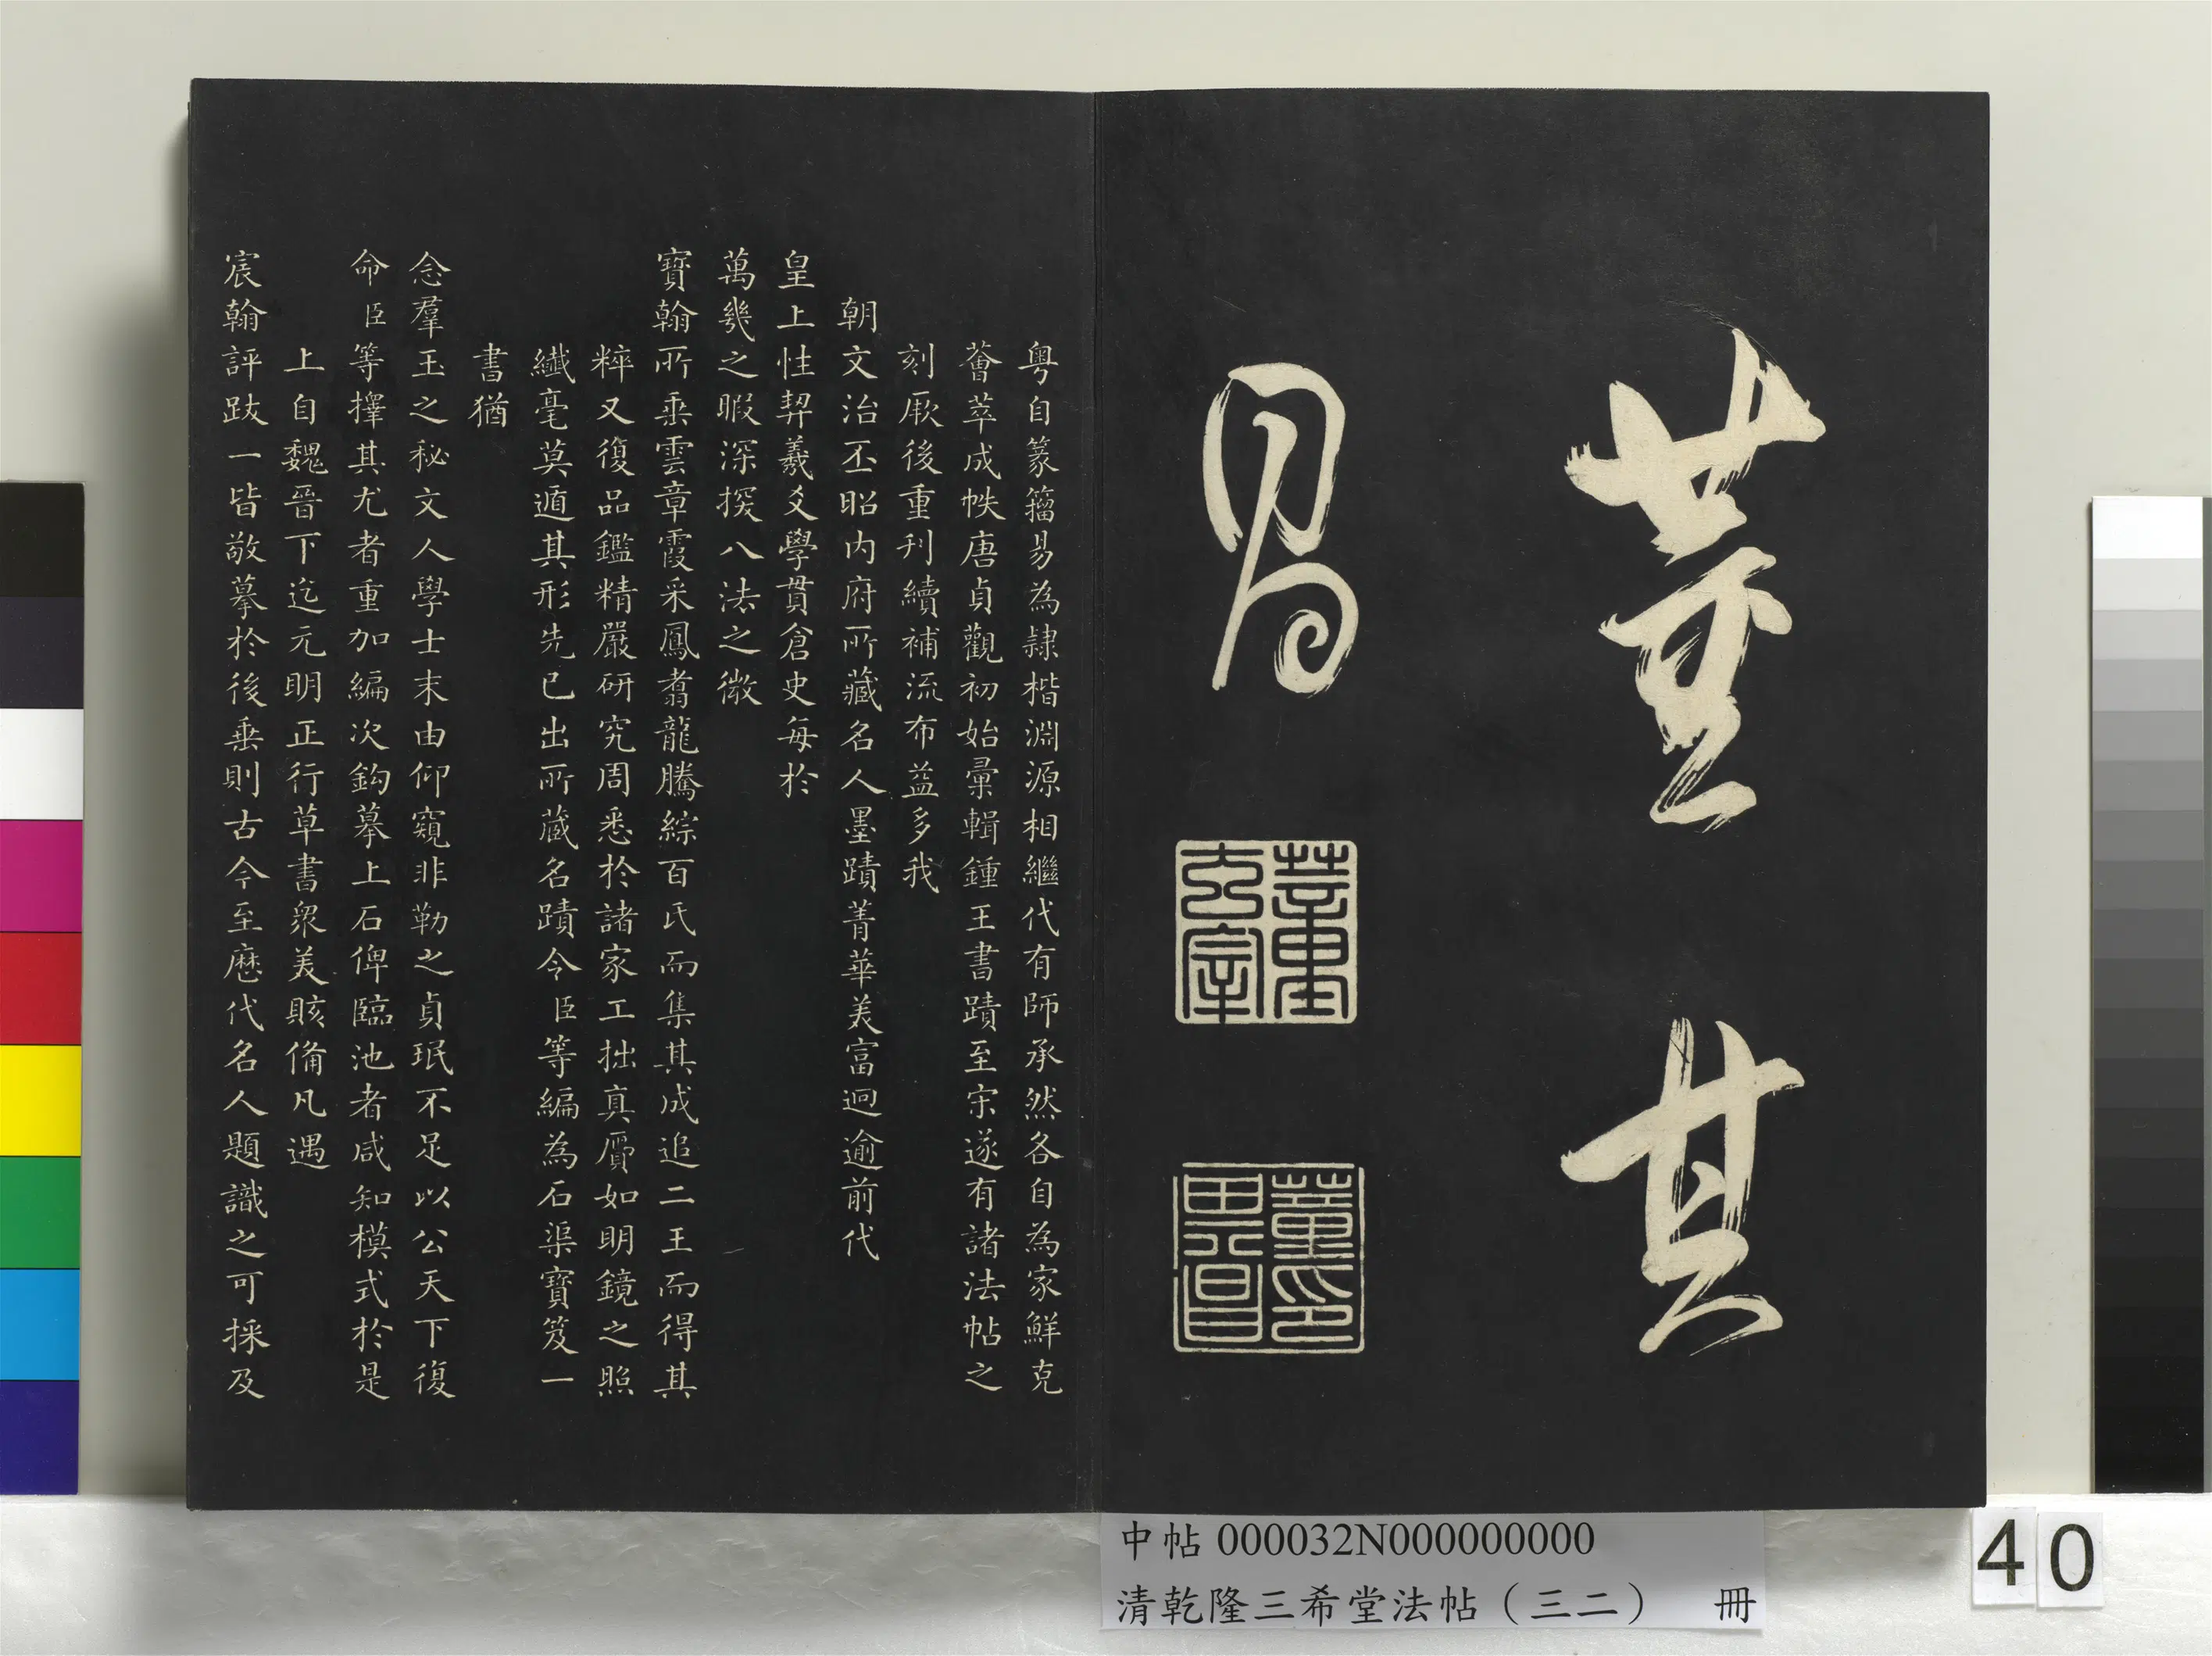 董其
昌
董氏玄宰
董其昌印
粵自篆籀易為隸楷淵源相繼代有師承然各自為家鮮克
薈萃成帙唐貞觀初始彙輯鍾王書蹟至宋遂有諸法帖之
刻厥後重刊續補流布益多我
朝文治丕昭內府所藏名人墨蹟菁華美富迥逾前代
皇上性契羲爻學貫倉史每於
萬幾之暇深探八法之微
寶翰所垂雲章霞采鳳翥龍騰綜百氏而集其成追二王而得其
粹又復品鑑精嚴研究周悉於諸家工拙真贗如明鏡之照
纖毫莫遁其形先已出所藏名蹟令臣等編為石渠寶笈一
書猶
念羣玉之秘文人學士末由仰窺非勒之貞珉不足以公天下復
命臣等擇其尤者重加編次鈎摹上石俾臨池者咸知模式於是
上自魏晉下迄元明正行草書眾美賅備凡遇
宸翰評跋一皆敬摹於後垂則古今至歷代名人題識之可採及
中帖 000032N000000000
清乾隆三希堂法帖（三二） 冊
40